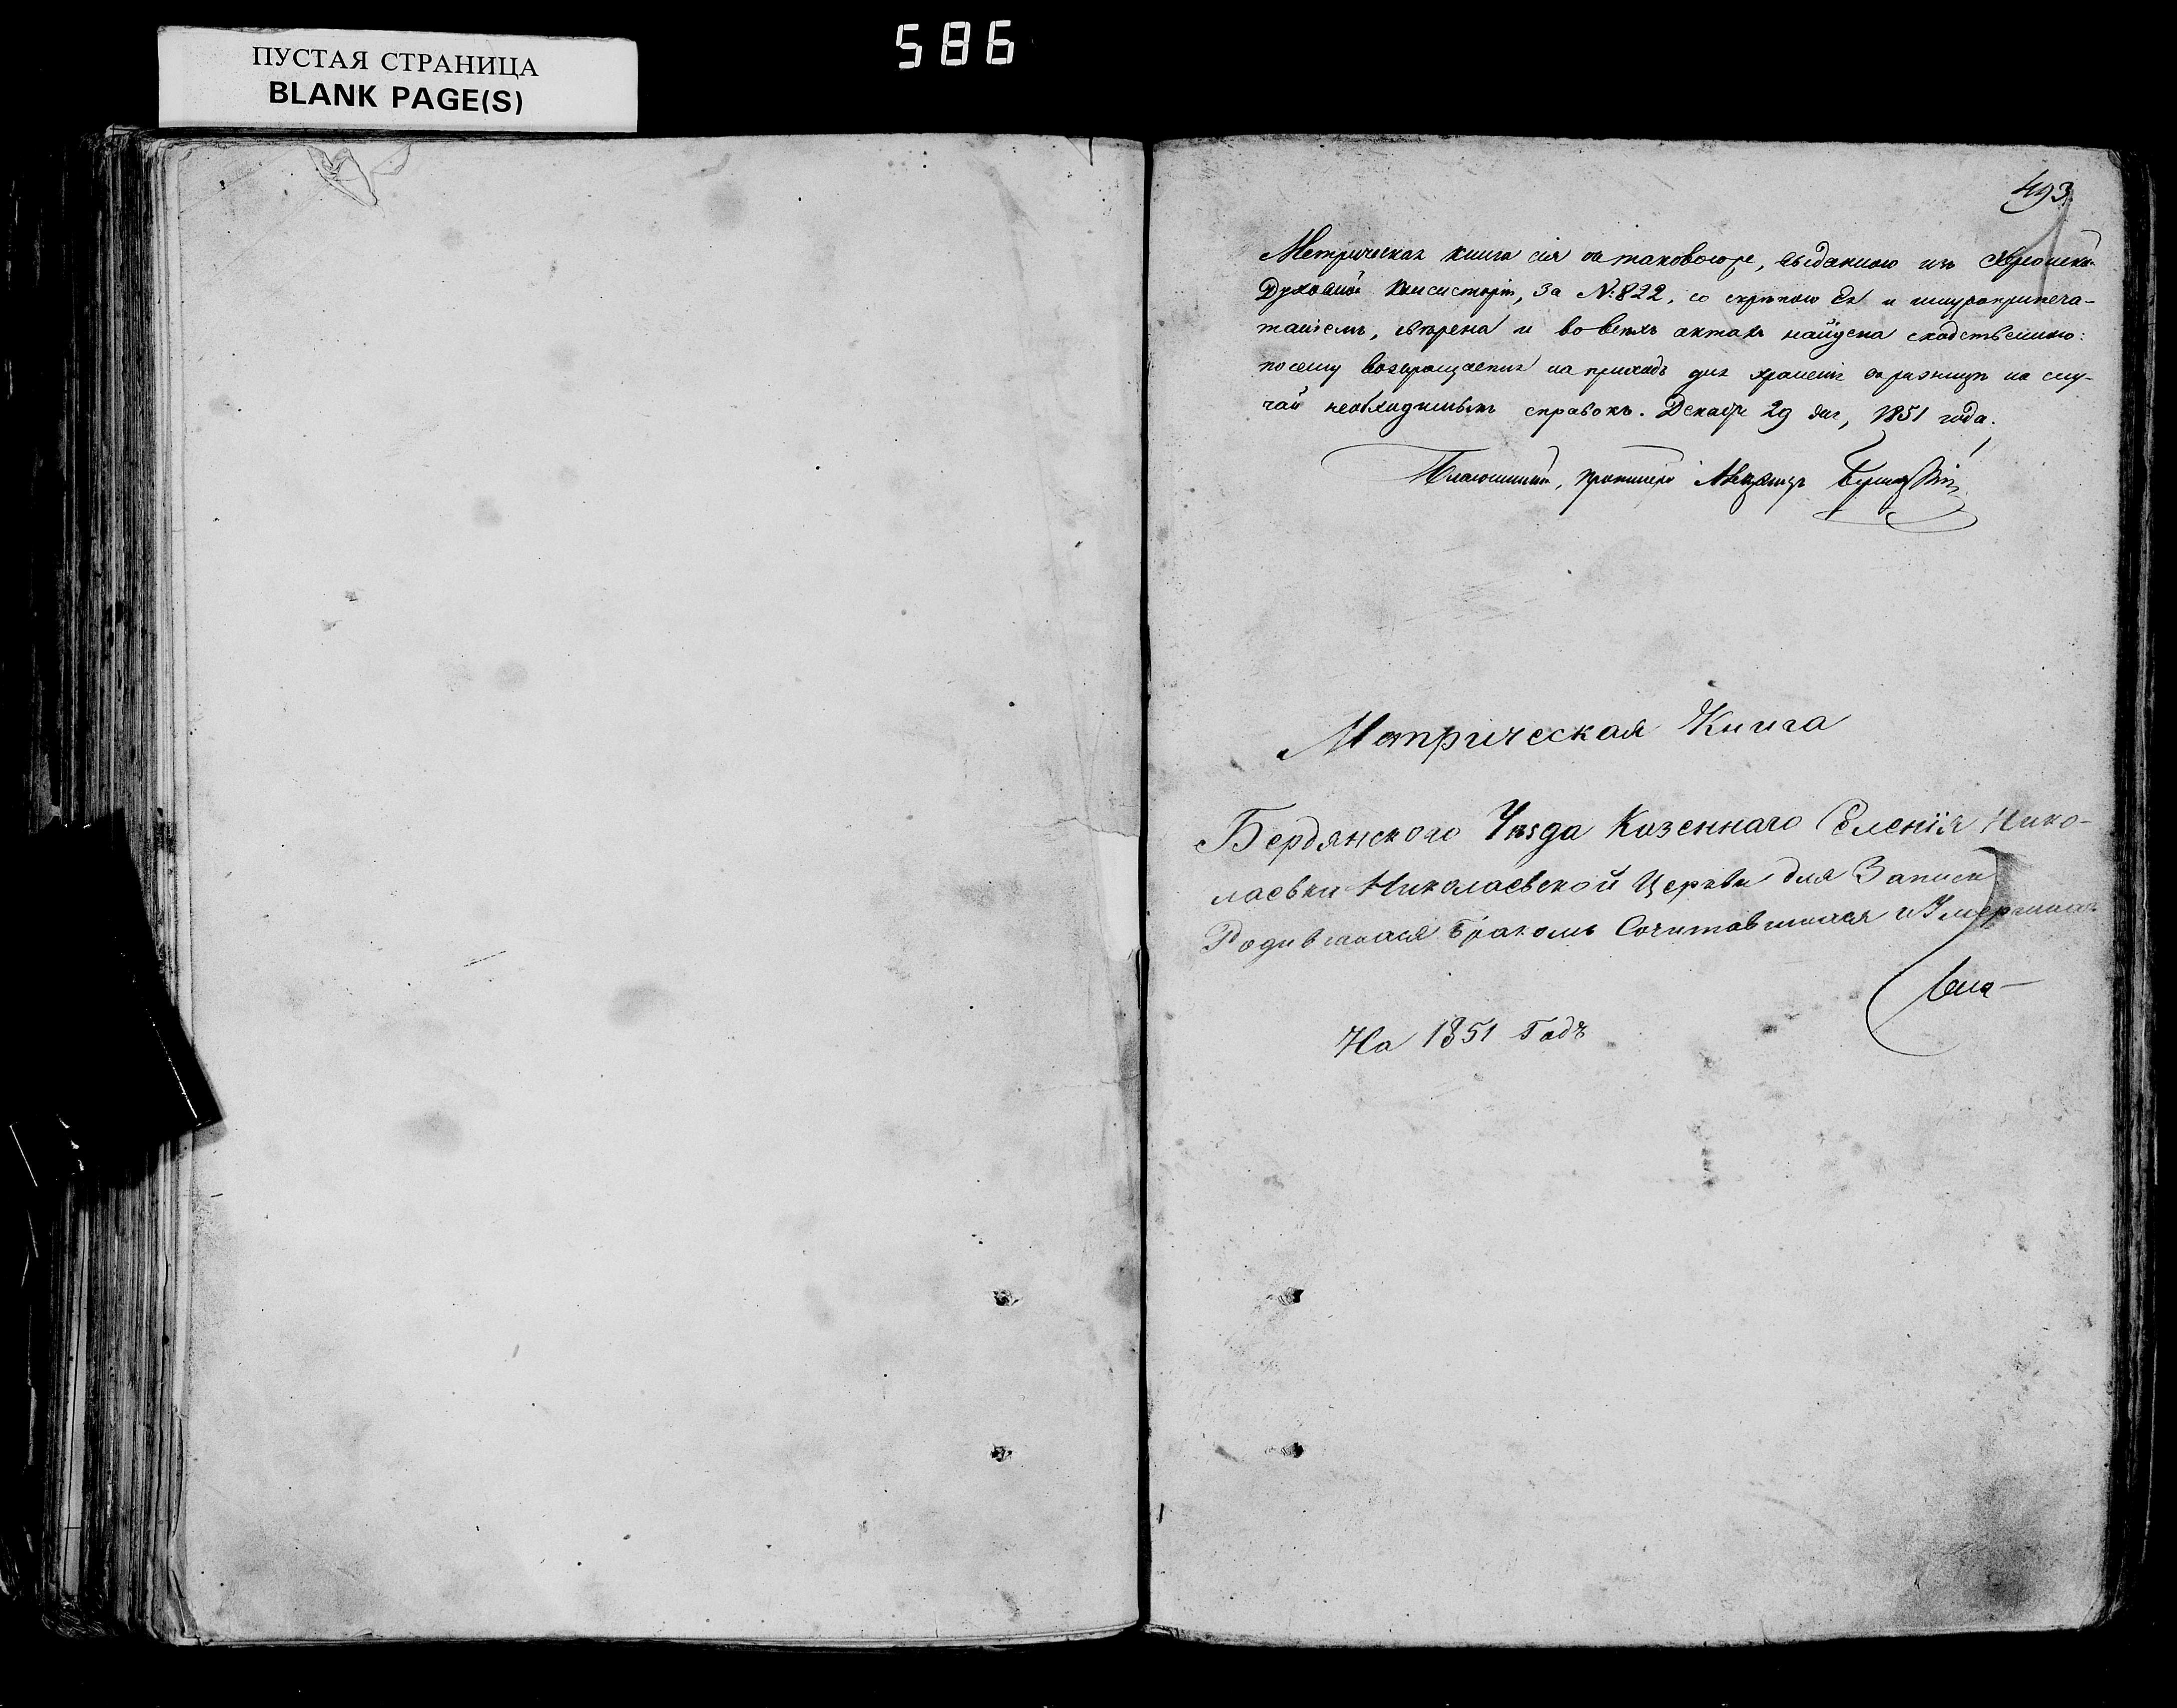 ПУСТАЯ СТРАНИЦА
BLANK PAGE(S)
586
493
Метрическая книга сія съ таковоюже, выданною изъ Херсонской
Духовной Консисторіи, за №: 822, со скрѣпою Ея и шнуроприпеча-
таніемъ, свѣрена и во всѣхъ актахъ найдена сходственною:
посему возвращается на приходъ для храненія въ ризницѣ на слу-
чай необходимыхъ справокъ. Декабря 29 дня, 1851 года.
Благочинный, протоіерей
Метрическая Книга
Бердянского Уѣзда Казеннаго Селенія Нико-
лаевки Николаевской Церкви для Записи
Родившихся Бракомъ Сочитавшихся и Умершихъ
На 1851 Годъ